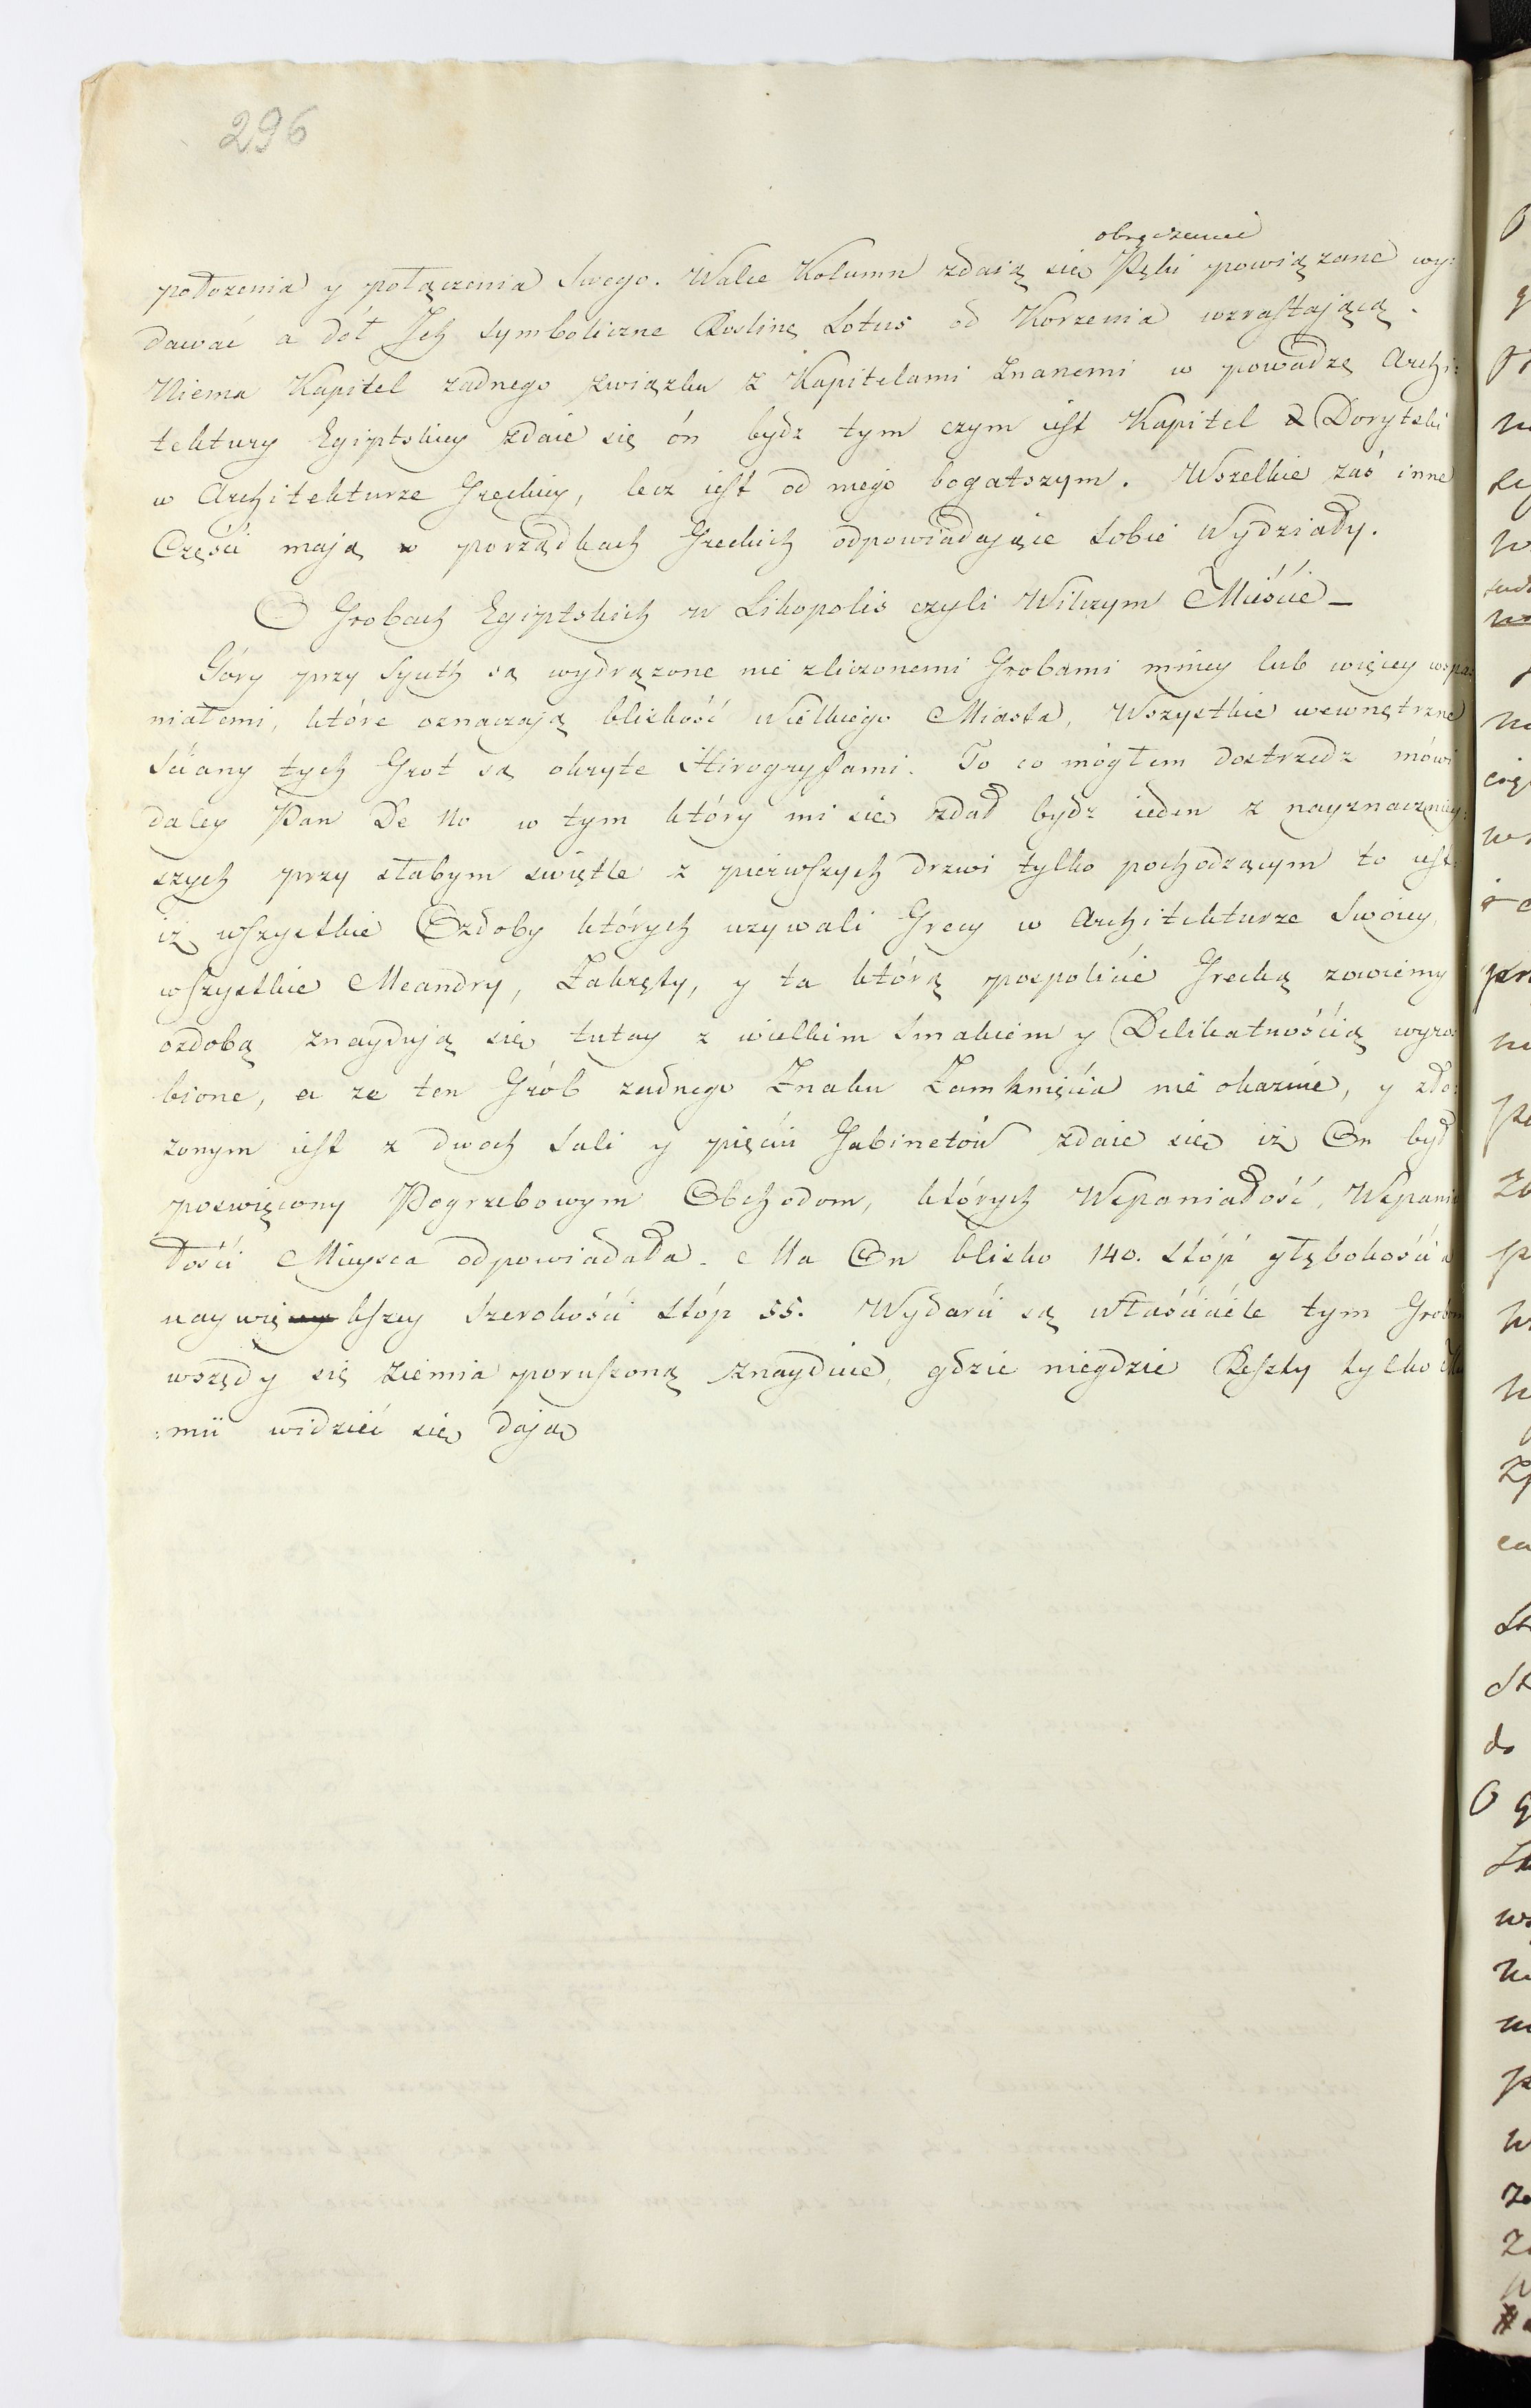 296
obręczami
położenia y połączenia Swego. Walce Kolumn zdaią się Pęki powiązane wy:
dawać a dół Ich Symboliczne Roslinę Lotus od Korzenia wzrastaiącą.
Niema Kapitel żadnego związku z Kapitelami Znanemi w powadze Archi:
tektury Egiptskiey zdaie się ón bydz tym czym iest Kapitel Dorytski
w Architekturze Greckiey, lecz iest od niego bogatszym. Wszelkie zaś inne
Części mają w porządkach Greckich odpowiadające Sobie Wydziały.
O Grobach Egiptskich w Likopolis czyli Wilczym Mieście _
Góry przy Syuth są wydrązone nie zliczonemi Grobami mniey lub więcey wspa:
niałemi, które oznaczają bliskość Wielkiego Miasta, Wszystkie wewnętrzne
Ściany tych Grot są okryte Hirogryfami. To co mógłem dostrzedz mówi
daley Pan De No w tym który mi się zdał bydz ieden z nayznaczniey:
szych przy słabym swiętle z pierwszych drzwi tylko pochodzącym to iest
iż wszystkie Ozdoby których uzywali Grecy w Architekturze Swoiey,
wszystkie Meandry, Zakręty, y ta którą pospolicie Grecką zowiemy
ozdobą znaydują się tutay z wielkim Smakiem y Delikatnością wyro:
bione, a ze ten Grób zadnego Znaku Zamknięcia nie okazuie, y zło:
zonym iest z dwoch Sali y pięciu Gabinetów zdaie się iż On był
poswięcony Pogrzebowym Obchodom, których Wspaniałość, Wspania
łości Mieysca odpowiadała. Ma On blisko 140. Stóp głębokości a
naywiększey Szerokości Stóp 55. Wydarci są właściciele tym Grobom
wszędy się ziemia poruszoną znayduie, gdzie niegdzie Reszty tylko
:mii widzieć się daja